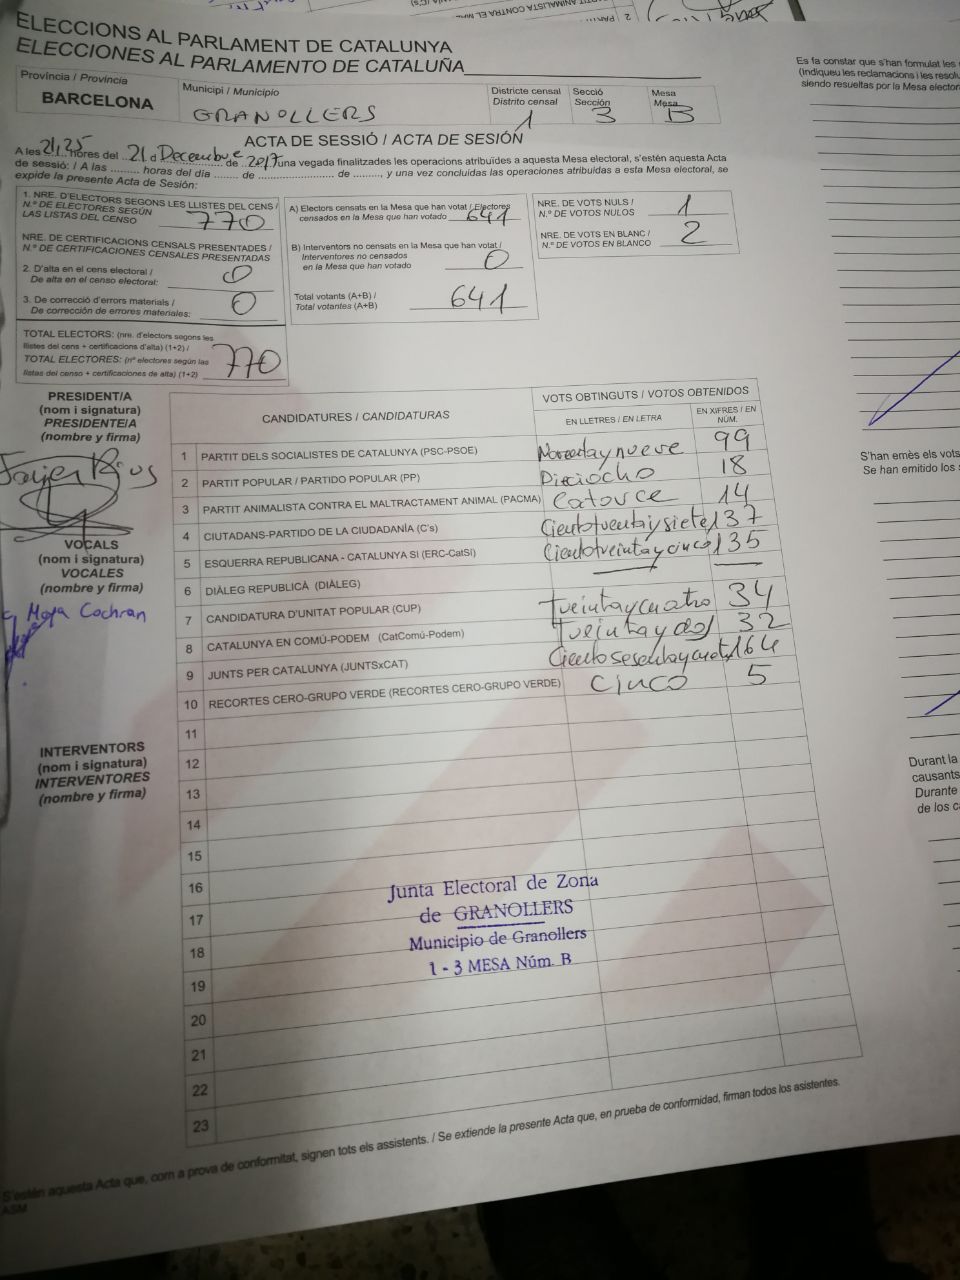 ELECCIONS AL PARLAMENT DE CATALUNYA
ELECCIONES AL PARLAMENTO DE CATALUÑA
Província / Provincia
BARCELONA
Municipi / Municipio
GRANOLLERS
Districte censal
Distrito censal
1
Secció
Sección
3
Mesa
Mesa
B
ACTA DE SESSIÓ / ACTA DE SESIÓN
A les 21,25 hores del 21 d Decembre de 2017 una vegada finalitzades les operacions atribuïdes a aquesta Mesa electoral, s'estén aquesta Acta
de sessió: / A las ......... horas del día ........ de ...................... de ........., y una vez concluidas las operaciones atribuidas a esta Mesa electoral, se
expide la presente Acta de Sesión:
1. NRE. D'ELECTORS SEGONS LES LLISTES DEL CENS /
N.º DE ELECTORES SEGÚN
LAS LISTAS DEL CENSO 770
NRE. DE CERTIFICACIONS CENSALS PRESENTADES /
N.º DE CERTIFICACIONES CENSALES PRESENTADAS
2. D'alta en el cens electoral /
De alta en el censo electoral: 0
3. De correcció d'errors materials /
De corrección de errores materiales: 0
TOTAL ELECTORS: (nre. d'electors segons les
llistes del cens + certificacions d'alta) (1+2) /
TOTAL ELECTORES: (nº electores según las
listas del censo + certificaciones de alta) (1+2) 770
A) Electors censats en la Mesa que han votat / Electores
censados en la Mesa que han votado 641
B) Interventors no censats en la Mesa que han votat /
Interventores no censados
en la Mesa que han votado 0
Total votants (A+B) /
Total votantes (A+B) 641
NRE. DE VOTS NULS /
N.º DE VOTOS NULOS 1
NRE. DE VOTS EN BLANC /
N.º DE VOTOS EN BLANCO 2
PRESIDENT/A
(nom i signatura)
PRESIDENTE/A
(nombre y firma)
Javier Rius
VOCALS
(nom i signatura)
VOCALES
(nombre y firma)
Moya Cochran
INTERVENTORS
(nom i signatura)
INTERVENTORES
(nombre y firma)
CANDIDATURES / CANDIDATURAS
VOTS OBTINGUTS / VOTOS OBTENIDOS
EN LLETRES / EN LETRA
EN XIFRES / EN NÚM.
1 PARTIT DELS SOCIALISTES DE CATALUNYA (PSC-PSOE) Noventa y nueve 99
2 PARTIT POPULAR / PARTIDO POPULAR (PP) Dieciocho 18
3 PARTIT ANIMALISTA CONTRA EL MALTRACTAMENT ANIMAL (PACMA) Catorce 14
4 CIUTADANS-PARTIDO DE LA CIUDADANÍA (C's) Ciento treinta y siete 137
5 ESQUERRA REPUBLICANA - CATALUNYA SÍ (ERC-CatSí) Ciento treinta y cinco 135
6 DIÀLEG REPUBLICÀ (DIÀLEG)
7 CANDIDATURA D'UNITAT POPULAR (CUP) treinta y cuatro 34
8 CATALUNYA EN COMÚ-PODEM (CatComú-Podem) treinta y dos 32
9 JUNTS PER CATALUNYA (JUNTSxCAT) Ciento sesenta y cuatro 164
10 RECORTES CERO-GRUPO VERDE (RECORTES CERO-GRUPO VERDE) Cinco 5
11
12
13
14
15
16
17
18
19
20
21
22
23
Junta Electoral de Zona
de GRANOLLERS
Municipio de Granollers
1 - 3 MESA Núm. B
S'estén aquesta Acta que, com a prova de conformitat, signen tots els assistents. / Se extiende la presente Acta que, en prueba de conformidad, firman todos los asistentes.
ASM
Es fa constar que s'han formulat les
(indiqueu les reclamacions i les resolu
siendo resueltas por la Mesa elector
S'han emès els vots
Se han emitido los
Durant la
causants
Durante
de los c